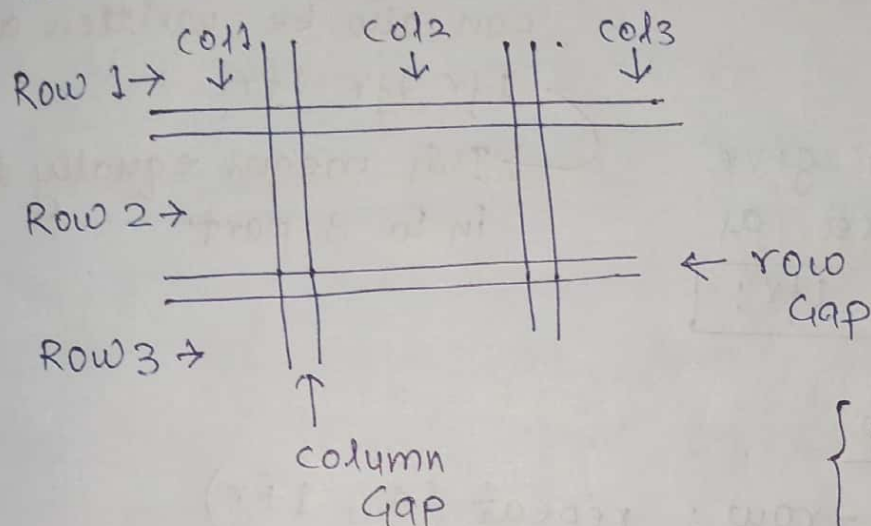 Col1 Col2 Col3
↓ ↓ ↓
Row 1 →
Row 2 →
← row
Gap
Row 3 →
↑
Column
Gap
{